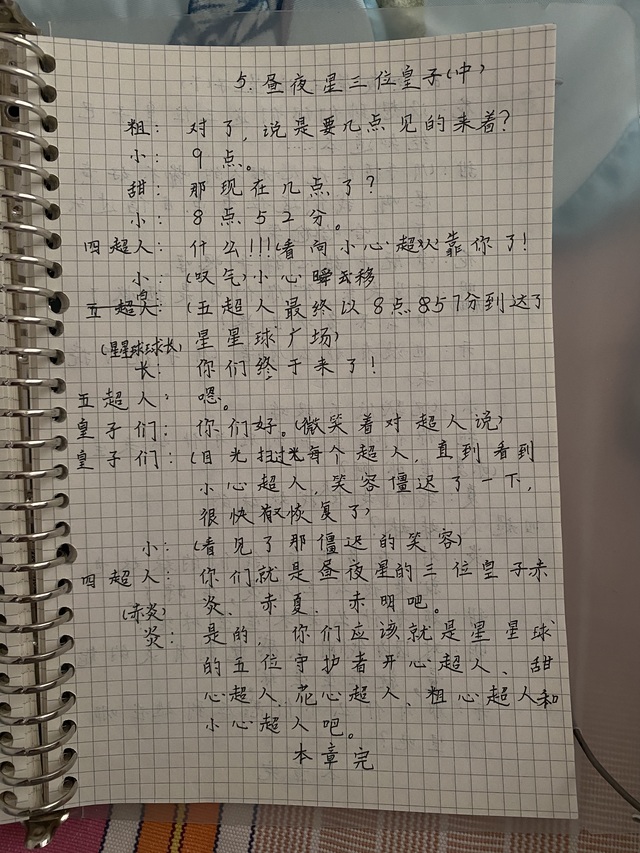 5.昼夜星三位皇子(中)
粗：对了，说是要几点见的来着？
小：9点。
甜：那现在几点了？
小：8点52分。
四超人：什么!!!(看向小心超人)靠你了!
小：(叹气)小心瞬云移
五超人：(五超人最终以8点857分到达了
(星星球球长) 星星球广场)
长：你们终于来了!
五超人：嗯。
皇子们：你们好。(微笑着对超人说)
皇子们：(目光扫过每个超人，直到看到
小心超人，笑容僵迟了一下，
很快又恢复了)
小：(看见了那僵迟的笑容)
四超人：你们就是昼夜星的三位皇子赤
炎、赤夏、赤明吧。
(赤炎)
炎：是的，你们应该就是星星球
的五位守护者开心超人、甜
心超人、花心超人、粗心超人和
小心超人吧。
本章完